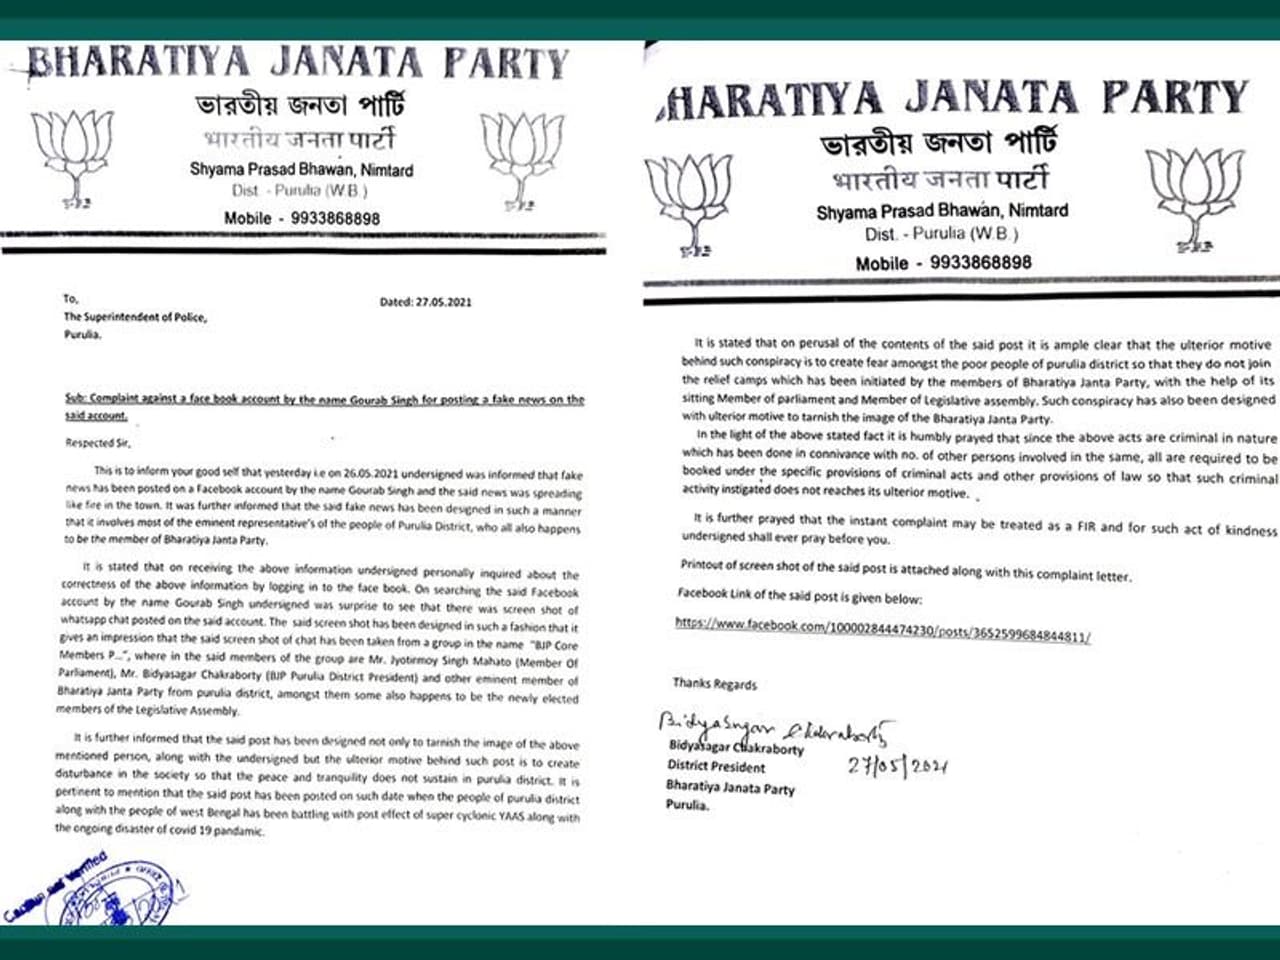 BHARATIYA JANATA PARTY
ভারতীয় জনতা পার্টি
भारतीय जनता पार्टी
Shyama Prasad Bhawan, Nimtard
Dist. - Purulia (W.B.)
Mobile - 9933868898
To,
Dated: 27.05.2021
The Superintendent of Police,
Purulia.
Sub: Complaint against a face book account by the name Gourab Singh for posting a fake news on the
said account.
Respected Sir,
This is to inform your good self that yesterday i.e on 26.05.2021 undersigned was informed that fake
news has been posted on a Facebook account by the name Gourab Singh and the said news was spreading
like fire in the town. It was further informed that the said fake news has been designed in such a manner
that it involves most of the eminent representative's of the people of Purulia District, who all also happens
to be the member of Bharatiya Janta Party.
It is stated that on receiving the above information undersigned personally inquired about the
correctness of the above information by logging in to the face book. On searching the said Facebook
account by the name Gourab Singh undersigned was surprise to see that there was screen shot of
whatsapp chat posted on the said account. The said screen shot has been designed in such a fashion that it
gives an impression that the said screen shot of chat has been taken from a group in the name "BJP Core
Members P...", where in the said members of the group are Mr. Jyotirmoy Singh Mahato (Member Of
Parliament), Mr. Bidyasagar Chakraborty (BJP Purulia District President) and other eminent member of
Bharatiya Janta Party from purulia district, amongst them some also happens to be the newly elected
members of the Legislative Assembly.
It is further informed that the said post has been designed not only to tarnish the image of the above
mentioned person, along with the undersigned but the ulterior motive behind such post is to create
disturbance in the society so that the peace and tranquility does not sustain in purulia district. It is
pertinent to mention that the said post has been posted on such date when the people of purulia district
along with the people of west Bengal has been battling with post effect of super cyclonic YAAS along with
the ongoing disaster of covid 19 pandamic.
Verified
HARATIYA JANATA PARTY
ভারতীয় জনতা পার্টি
भारतीय जनता पार्टी
Shyama Prasad Bhawan, Nimtard
Dist. - Purulia (W.B.)
Mobile - 9933868898
It is stated that on perusal of the contents of the said post it is ample clear that the ulterior motive
behind such conspiracy is to create fear amongst the poor people of purulia district so that they do not join
the relief camps which has been initiated by the members of Bharatiya Janta Party, with the help of its
sitting Member of parliament and Member of Legislative assembly. Such conspiracy has also been designed
with ulterior motive to tarnish the image of the Bharatiya Janta Party.
In the light of the above stated fact it is humbly prayed that since the above acts are criminal in nature
which has been done in connivance with no. of other persons involved in the same, all are required to be
booked under the specific provisions of criminal acts and other provisions of law so that such criminal
activity instigated does not reaches its ulterior motive.
It is further prayed that the instant complaint may be treated as a FIR and for such act of kindness
undersigned shall ever pray before you.
Printout of screen shot of the said post is attached along with this complaint letter.
Facebook Link of the said post is given below:
https://www.facebook.com/100002844474230/posts/3652599684844811/
Thanks Regards
Bidyasagar Chakraborty
Bidyasagar Chakraborty
27/05/2021
District President
Bharatiya Janata Party
Purulia.